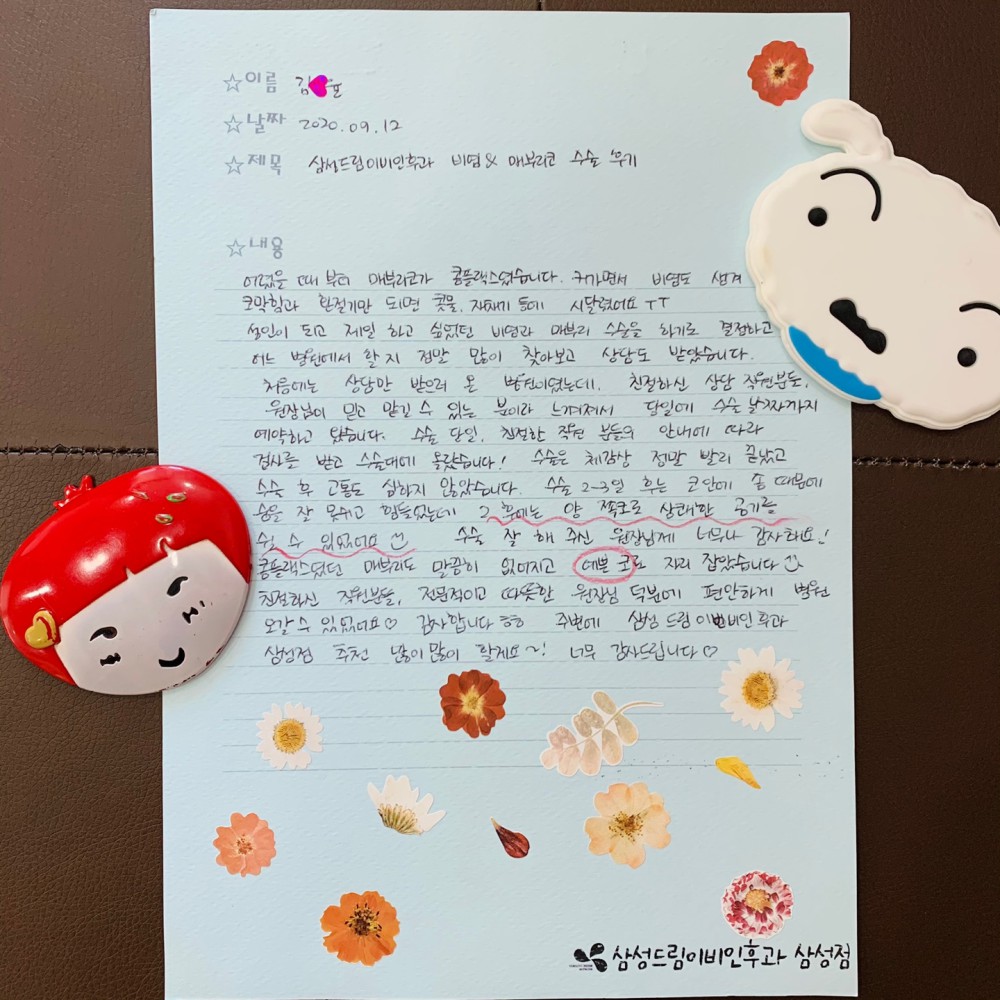 ☆이름 김♥윤
☆날짜 2020.09.12
☆제목 삼성드림이비인후과 비염 & 매부리코 수술 후기
☆내용
어렸을 때 부터 매부리코가 콤플랙스였습니다. 커가면서 비염도 생겨
코막힘과 환절기만 되면 콧물, 재채기 등에 시달렸어요 ㅜㅜ
성인이 되고 제일 하고 싶었던 비염과 매부리 수술을 하기로 결정하고
어느 병원에서 할지 정말 많이 찾아보고 상담도 받았습니다.
처음에는 상담만 받으러 온 병원이였는데, 친절하신 상담 직원분들,
원장님이 믿고 맡길 수 있는 분이라 느껴져서 당일에 수술 날짜까지
예약하고 왔습니다. 수술 당일, 친절한 직원 분들의 안내에 따라
검사를 받고 수술대에 올랐습니다! 수술은 체감상 정말 빨리 끝났고
수술 후 고통도 심하지 않았습니다. 수술 2-3일 후는 코안에 솜 때문에
숨을 잘 못쉬고 힘들었는데 그 후에는 양 쪽코로 상쾌한 공기를
쉴 수 있었어요 수술 잘 해 주신 원장님께 너무나 감사해요!
콤플랙스였던 매부리도 말끔히 없어지고 예쁜 코로 자리 잡았습니다
친절하신 직원분들, 전문적이고 따뜻한 원장님 덕분에 편안하게 병원
오갈 수 있었어요♡ 감사합니다 ㅎㅎ 주변에 삼성드림이비인후과
삼성점 추천 많이많이 할게요~! 너무 감사드립니다♡
삼성드림이비인후과 삼성점